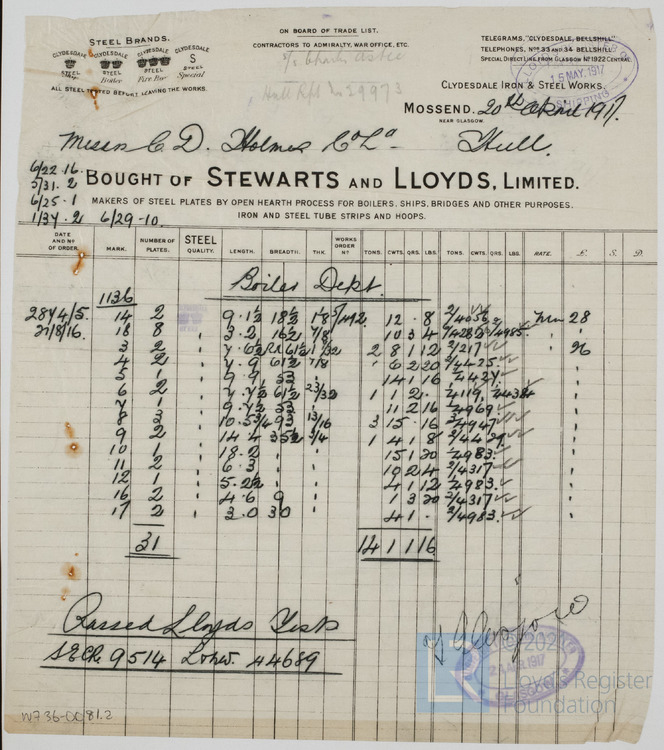 STEEL BRANDS.
CLYDESDALE CLYDESDALE CLYDESDALE CLYDESDALE
S
Steel Steel Steel STEEL
Boiler Fire Box Special
ALL STEEL TESTED BEFORE LEAVING THE WORKS.
ON BOARD OF TRADE LIST.
CONTRACTORS TO ADMIRALTY, WAR OFFICE, ETC.
Hull Rpt No 29973
TELEGRAMS, "CLYDESDALE, BELLSHILL"
TELEPHONES, Nos 33 AND 34 BELLSHILL
SPECIAL DIRECT LINE FROM GLASGOW No 1922 CENTRAL.
15 MAY. 1917
SHIPPING
CLYDESDALE IRON & STEEL WORKS,
MOSSEND, 20th April 1917.
NEAR GLASGOW.
Messrs C. D. Holmes Co Ld Hull.
6/22.16.
5/31.2
6/25.1
1/34.2 6/29-10.
BOUGHT OF STEWARTS AND LLOYDS, LIMITED.
MAKERS OF STEEL PLATES BY OPEN HEARTH PROCESS FOR BOILERS, SHIPS, BRIDGES AND OTHER PURPOSES.
IRON AND STEEL TUBE STRIPS AND HOOPS.
DATE AND No OF ORDER. MARK. NUMBER OF PLATES. STEEL QUALITY. LENGTH. BREADTH. THK. WORKS ORDER No TONS. CWTS. QRS. LBS. TONS. CWTS. QRS. LBS. RATE. £. S. D.
Boiler Dept.
1136
2844/5. 14 2 9.1½ 18½ 12 . 8 2/4056 28
27/8/16. 18 8 3.2 16½ 7/8 10 3 4
3 2 1/32 2 8 1 12 2/217 26
4 2 7.9 61½ 7/8 6 2 20 2/4425
5 1 9.9 53 14 1 16 4427
6 2 7.7½ 61½ 23/32 1 1 2 . 4119, 4438
7 1 9.7½ 53 11 2 16 4969
8 3 10.5¾ 93 13/16 3 15 . 16 4947
9 2 14.4 35½ 3/4 1 4 1 8
10 1 18.2 15 1 20 4983
11 2 6.3 10 2 4 2/4317
12 1 5.2½ 4 1 12 4983
16 2 4.6 9 1 3 20 2/4317
17 2 3.0 30 4 1 . 2/4983
31 14 1 1 16
Passed Lloyds Tests
9514 44689
APR 1917
© 2021
Lloyd's Register
Foundation
W736-0081.2